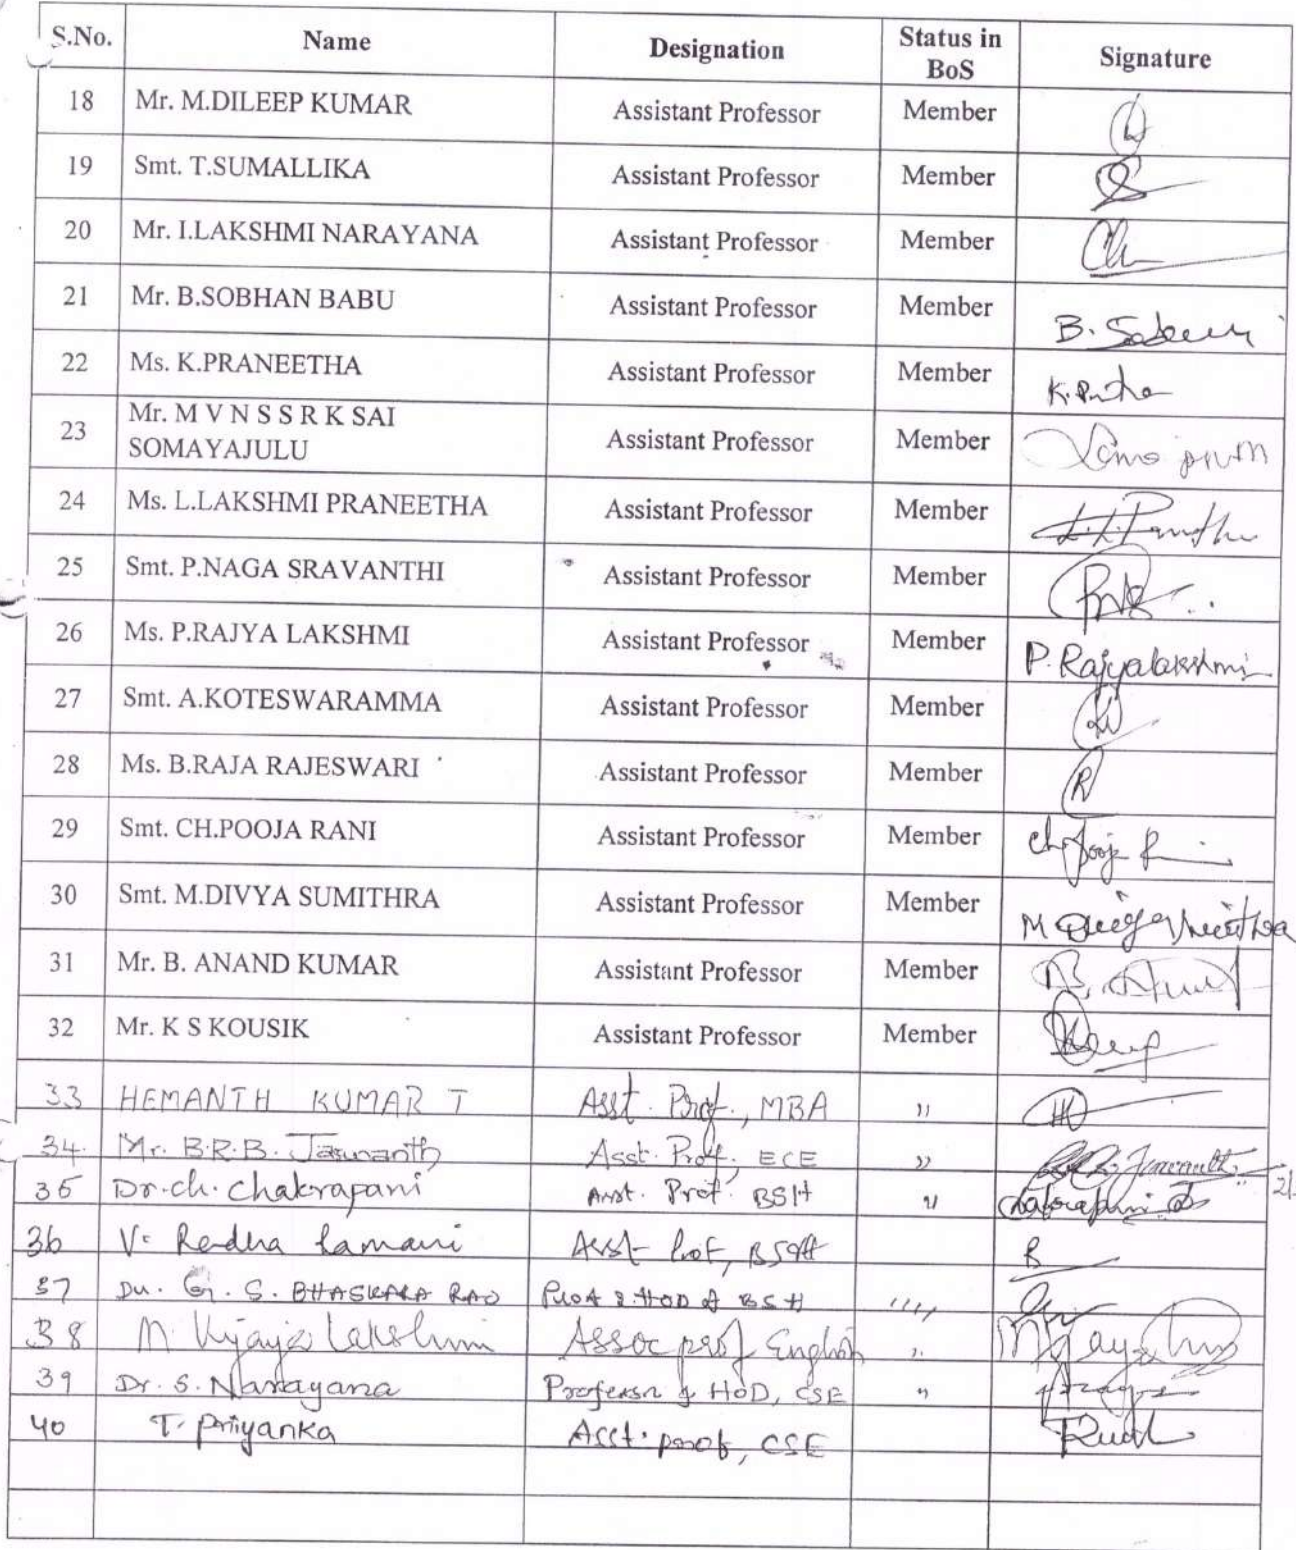 S.No. Name Designation Status in BoS Signature
18 Mr. M.DILEEP KUMAR Assistant Professor Member
19 Smt. T.SUMALLIKA Assistant Professor Member
20 Mr. I.LAKSHMI NARAYANA Assistant Professor Member
21 Mr. B.SOBHAN BABU Assistant Professor Member B.
22 Ms. K.PRANEETHA Assistant Professor Member
23 Mr. M V N S S R K SAI
SOMAYAJULU Assistant Professor Member
24 Ms. L.LAKSHMI PRANEETHA Assistant Professor Member
25 Smt. P.NAGA SRAVANTHI Assistant Professor Member
26 Ms. P.RAJYA LAKSHMI Assistant Professor Member P. Rajyalakshmi
27 Smt. A.KOTESWARAMMA Assistant Professor Member
28 Ms. B.RAJA RAJESWARI Assistant Professor Member
29 Smt. CH.POOJA RANI Assistant Professor Member
30 Smt. M.DIVYA SUMITHRA Assistant Professor Member
31 Mr. B. ANAND KUMAR Assistant Professor Member
32 Mr. K S KOUSIK Assistant Professor Member
33 HEMANTH KUMAR T Asst. Prof., MBA ,,
34. Mr. B.R.B. Jaswanth Asst. Prof. ECE ,,
35 Dr. ch. chakrapani Asst. Prof. BSH ,,
36 V. Asst Prof,
37 G. S. BHASKARA RAO Prof & HOD of BSH ,,,,
38 M. Vijaya Lakshmi Assoc prof English ,,
39 Dr. S. Narayana Professor & HoD, CSE ,,
40 T. Priyanka Asst. prof, CSE